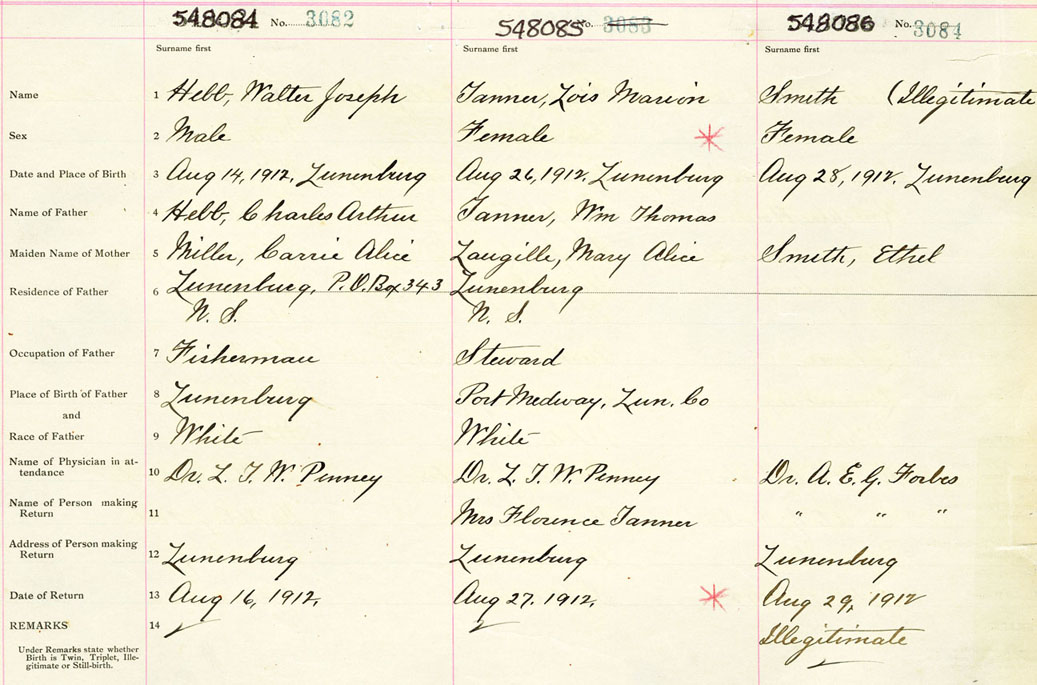 548084 No. 3082 548085 No. 3083 548086 No. 3084
Surname first Surname first Surname first
Name 1 Hebb, Walter Joseph Tanner, Lois Marion Smith (Illegitimate
Sex 2 Male Female Female
Date and Place of Birth 3 Aug 14, 1912. Lunenburg Aug 26, 1912. Lunenburg Aug 28, 1912. Lunenburg
Name of Father 4 Hebb, Charles Arthur Tanner, Wm Thomas
Maiden Name of Mother 5 Miller, Carrie Alice Zaugille, Mary Alice Smith, Ethel
Residence of Father 6 Lunenburg, P.O. Box 343 Lunenburg
N. S. N. S.
Occupation of Father 7 Fisherman Steward
Place of Birth of Father 8 Lunenburg Port Medway, Lun. Co
and
Race of Father 9 White White
Name of Physician in at-
tendance 10 Dr. L. T. W. Penney Dr. L. T. W. Penney Dr. A. E. G. Forbes
Name of Person making
Return 11 Mrs Florence Tanner " " "
Address of Person making
Return 12 Lunenburg Lunenburg Lunenburg
Date of Return 13 Aug 16, 1912. Aug 27. 1912. Aug 29, 1912
REMARKS 14 Illegitimate
Under Remarks state whether
Birth is Twin, Triplet, Ille-
gitimate or Still-birth.